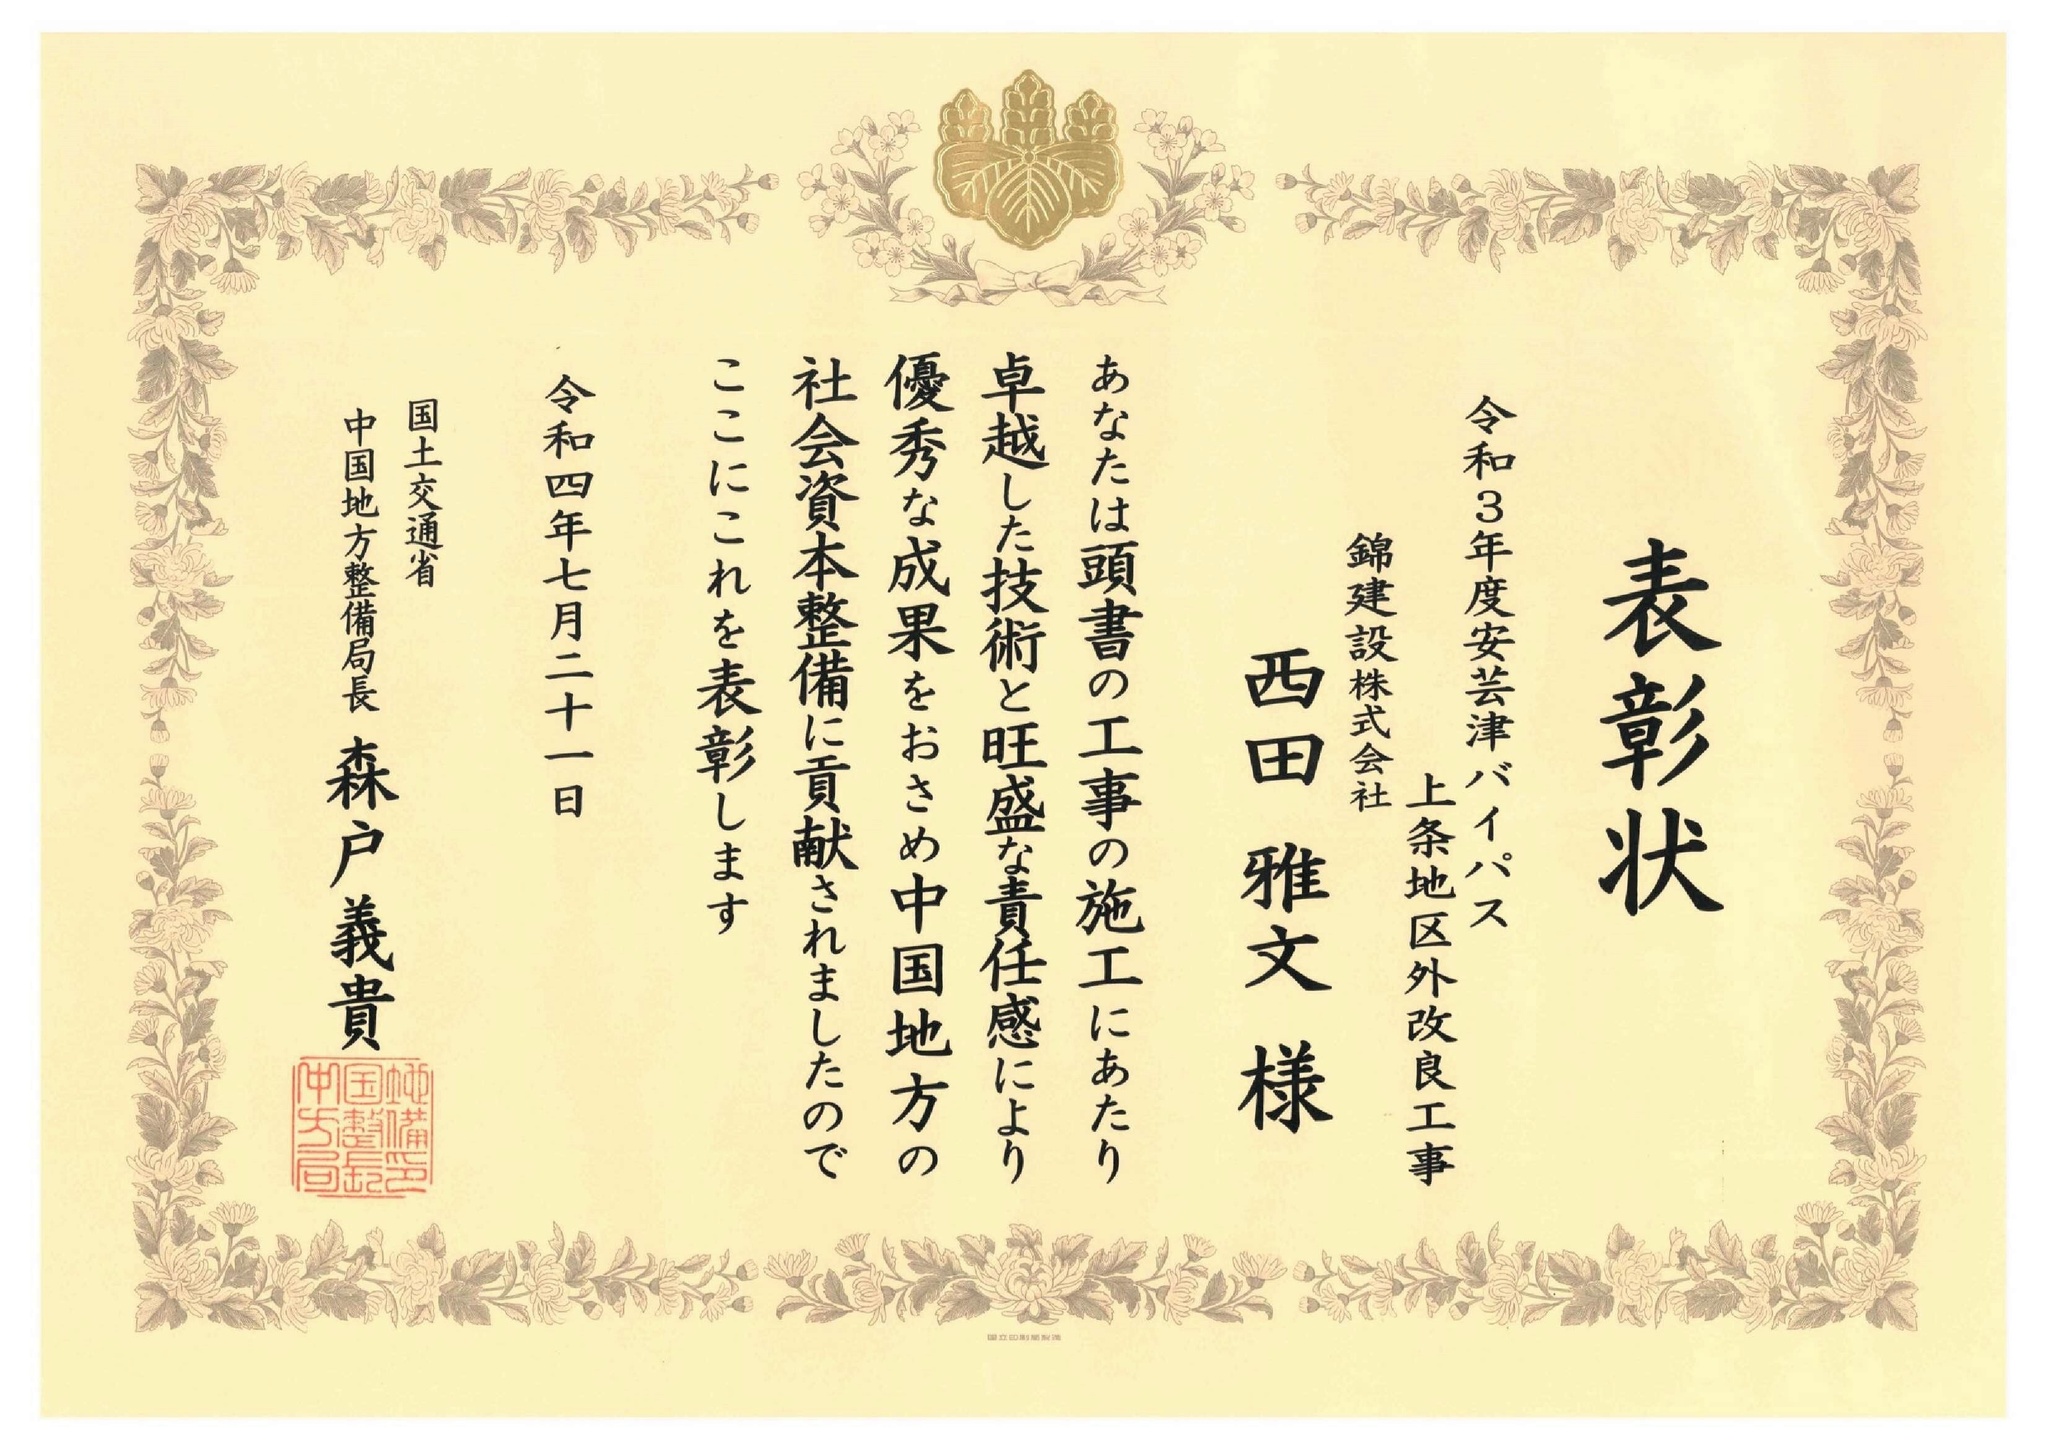 表彰状
令和3年度安芸津バイパス
上条地区外改良工事
錦建設株式会社
西田 雅文 様
あなたは頭書の工事の施工にあたり
卓越した技術と旺盛な責任感により
優秀な成果をおさめ中国地方の
社会資本整備に貢献されましたので
ここにこれを表彰します
令和四年七月二十一日
国土交通省
中国地方整備局長 森戸義貴
中国地方整備局長印
国立印刷局製造